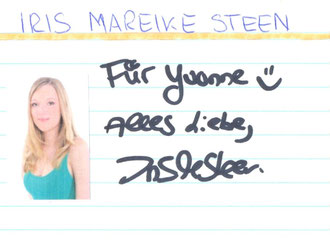 IRIS MAREIKE STEEN
Für Yvonne
Alles Liebe,